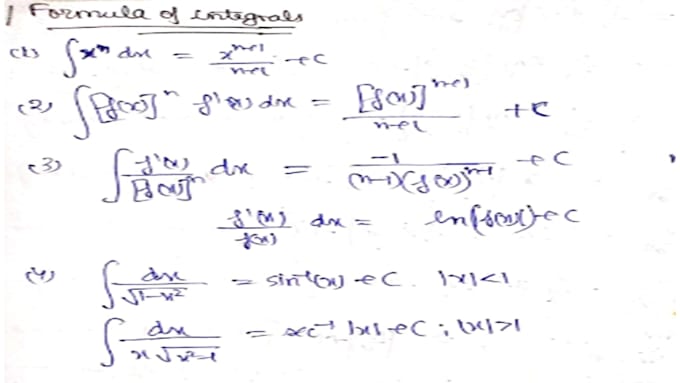 Formula of integrals
(1) ∫ xⁿ dx = xⁿ⁺¹/n+1 + C
(2) ∫ [f(x)]ⁿ f'(x) dx = [f(x)]ⁿ⁺¹/n+1 + C
(3) ∫ f'(x)/[f(x)]ⁿ dx = -1/(n-1)(f(x))ⁿ⁻¹ + C
f'(x)/f(x) dx = ln(f(x)) + C
(4) ∫ dx/√1-x² = sin⁻¹(x) + C. |x|<1
∫ dx/x√x²-1 = sec⁻¹ |x| + C ; |x|>1